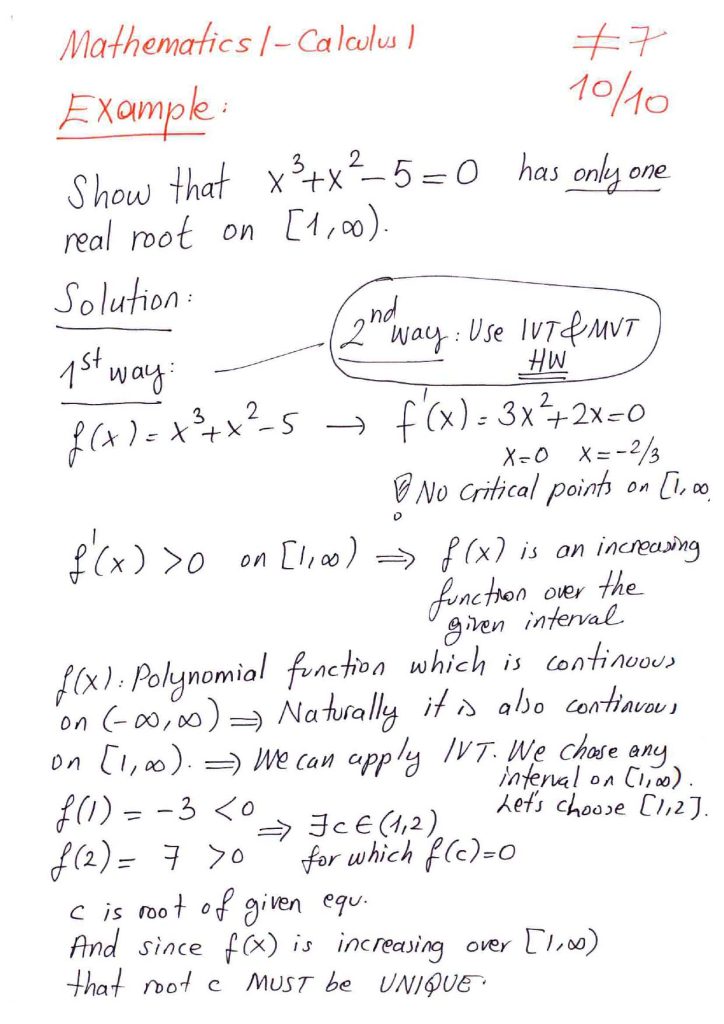 Mathematics 1 - Calculus 1 #7
10/10
Example:
Show that x³+x²-5=0 has only one
real root on [1,∞).
Solution:
2nd way: Use IVT & MVT
HW
1st way:
f(x)=x³+x²-5 → f'(x)=3x²+2x=0
x=0 x=-2/3
No critical points on [1,∞
f'(x)>0 on [1,∞) ⇒ f(x) is an increasing
function over the
given interval
f(x): Polynomial function which is continuous
on (-∞,∞) ⇒ Naturally it is also continuous
on [1,∞). ⇒ We can apply IVT. We chose any
interval on [1,∞).
f(1) = -3 <0 Let's choose [1,2].
⇒ ∃c∈(1,2)
f(2) = 7 >0 for which f(c)=0
c is root of given equ.
And since f(x) is increasing over [1,∞)
that root c MUST be UNIQUE.